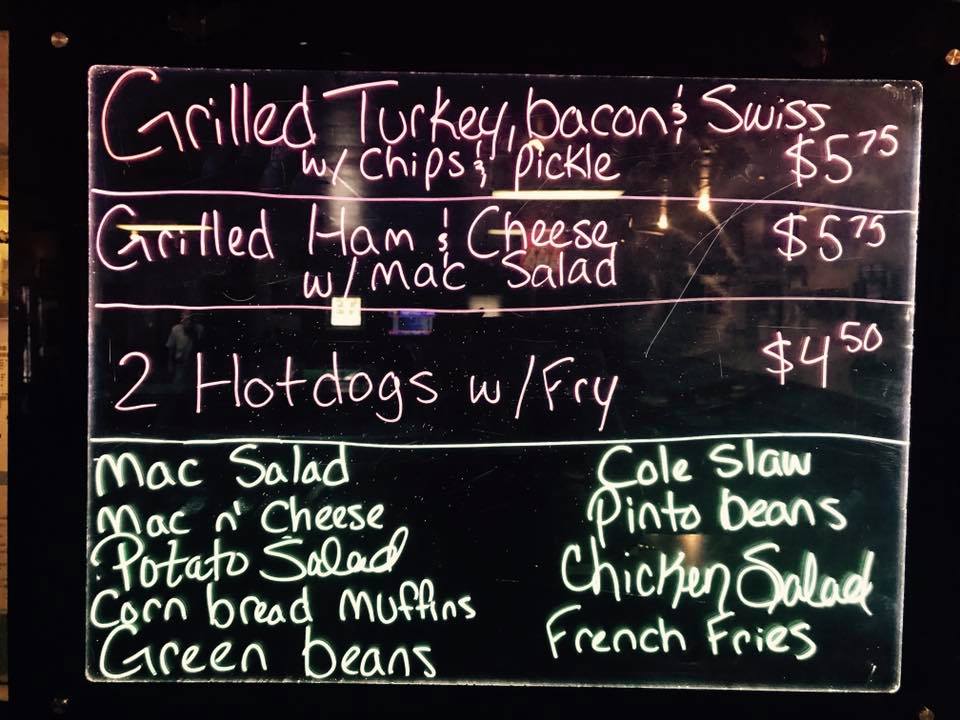 Grilled Turkey, bacon & Swiss
w/ Chips & Pickle $5 75
Grilled Ham & Cheese $5 75
w/ Mac Salad
2 Hotdogs w/Fry $4 50
Mac Salad
Cole Slaw
Mac n' Cheese
Pinto beans
Potato Salad
Chicken Salad
Corn bread Muffins
French Fries
Green beans